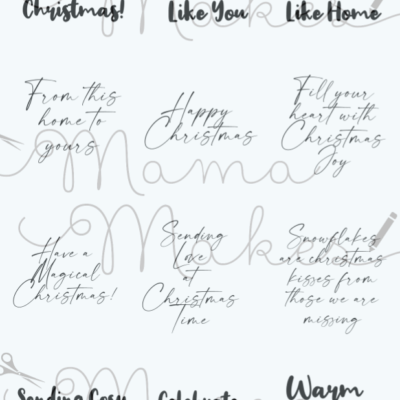 Christmas!
Like You
Like Home
From this
home to
yours
Happy
Christmas
Fill your
heart with
Christmas
Joy
Mama
Makes
Have a
Magical
Christmas!
Sending
Love
at
Christmas
Time
Snowflakes
are christmas
kisses from
those we are
missing
Sending Cosy
Celebrate
Warm